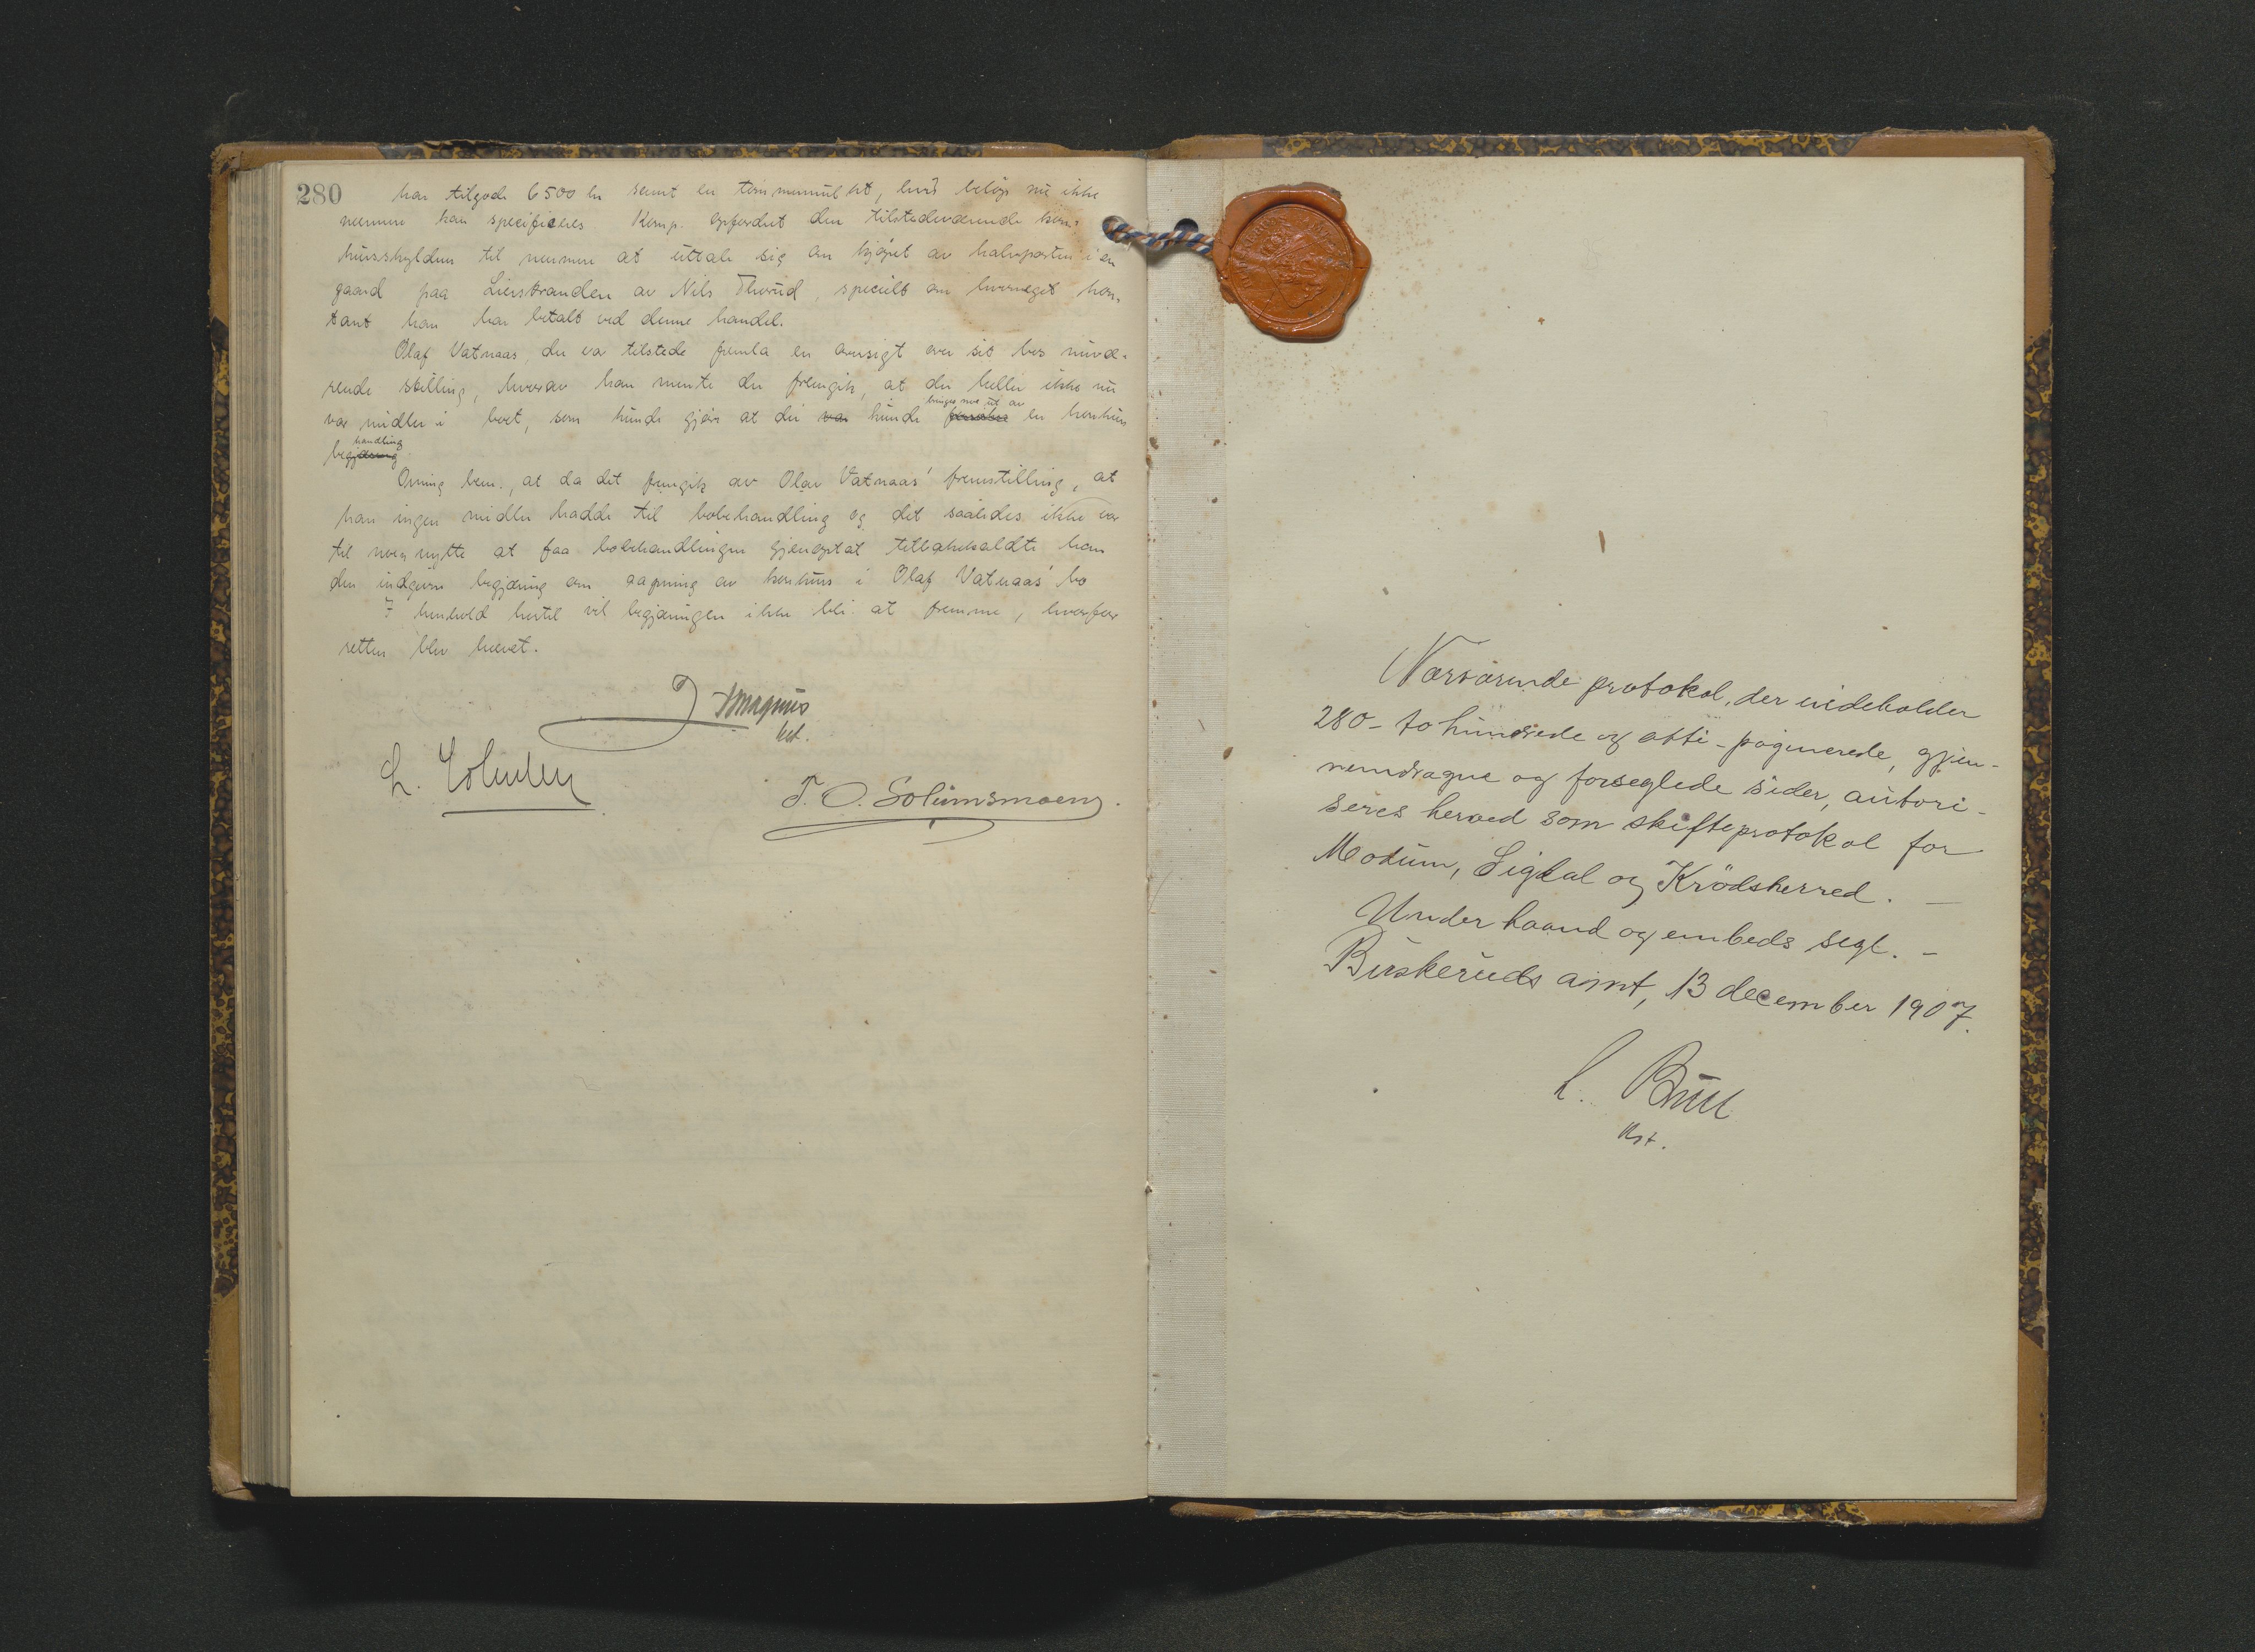 280
har tilgode 6500 kr samt en tømmermult, hvis beløp nu ikke
nærmere kan specificeres. Komp. opfordret den tilstedeværende kon-
kursskyldner til nærmere at uttale sig om kjøpet av halvparten i en
gaard paa Lierstranden av Nils Thorud, specielt om hvormeget kon-
tant han har betalt ved denne handel.
Olaf Vatnaas, der var tilstede fremla en oversigt over sit bos nuvæ-
rende stilling, hvorav han mente der fremgik, at der heller ikke nu
var midler i boet, som kunde gjøre at der var kunde bringes noe ut av en konkurs
behandling
Orning bem., at da det fremgik av Olav Vatnaas' fremstilling, at
han ingen midler hadde til bobehandling og det saaledes ikke var
til noen nytte at faa bobehandlingen gjenoptat tilbakekaldte han
den indgivne begjæring om aapning av konkurs i Olaf Vatnaas' bo
I henhold hertil vil begjæringen ikke bli at fremme, hvorfor
retten blev hævet.
Magnus
kst.
T. O. Solumsmoen.
Nærværende protokol, der indeholder
280 - to hundrede og otti - paginerede, gjen-
nemdragne og forseglede sider, autori-
seres herved som skifteprotokol for
Modum, Sigdal og Krødsherred. -
Under haand og embeds segl. -
Buskeruds amt, 13 december 1907.
Bull
kst.